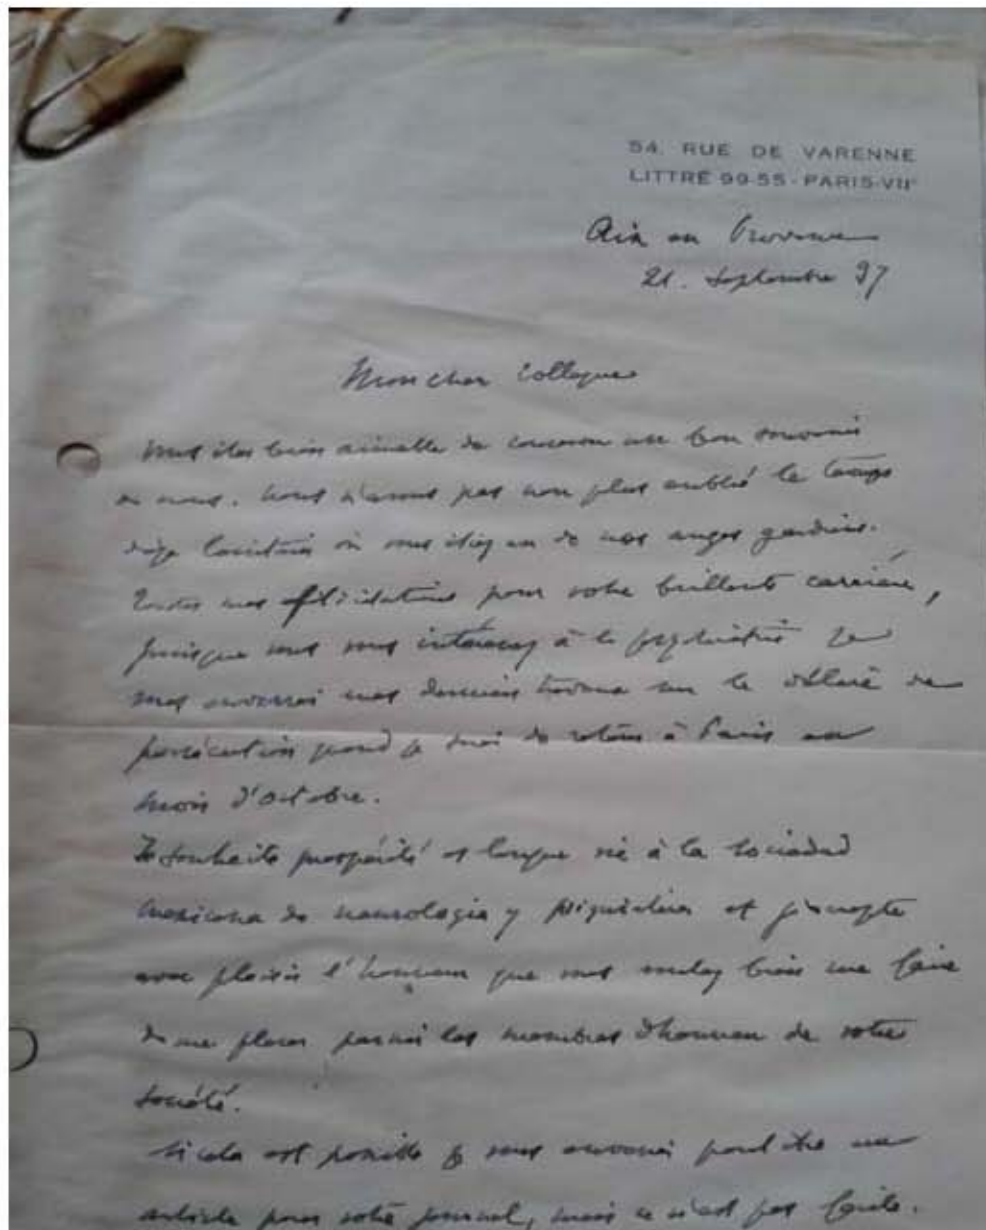 54, RUE DE VARENNE
LITTRÉ 99-55 - PARIS-VIIᵉ
Aix en Provence
21. Septembre 37
Mon cher collegue
Vous êtes bien aimable de conserver un bon souvenir
de nous. Nous n'avons pas non plus oublié le temps
où vous étiez un de nos anges gardiens.
Toutes mes félicitations pour votre brillante carrière,
puisque vous vous intéressez à la psychiatrie je
vous enverrai mes derniers travaux sur le délire de
persécution quand je serai de retour à Paris au
mois d'octobre.
Je souhaite prospérité et longue vie à la Sociedad
mexicana de neurologia y psiquiatria et j'accepte
avec plaisir l'honneur que vous voulez bien me faire
de me placer parmi les membres d'honneur de votre
société.
Si cela est possible je vous enverrai peut être un
article pour votre journal, mais ce n'est pas facile.